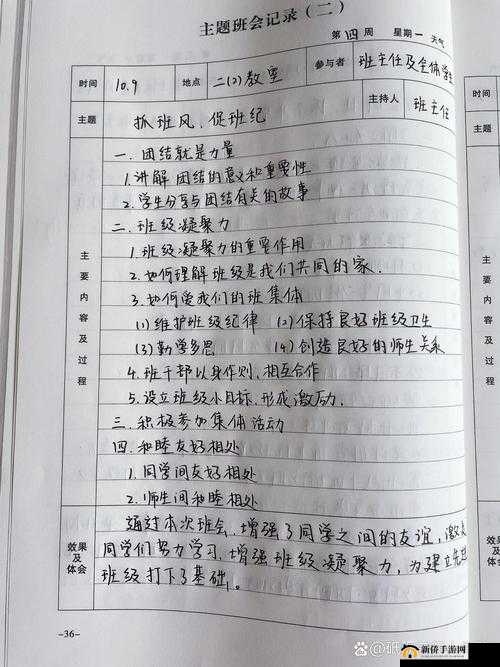 主题班会记录（二）
第四周 星期一 天气
时间 10.9 地点 二(2)教室 参与者 班主任及全体学生
主持人 班主任
主题 抓班风、促班纪
主要内容及过程
一. 团结就是力量
1.讲解团结的意义和重要性
2.学生分享与团结有关的故事
二.班级凝聚力
1.班级凝聚力的重要作用
2.如何理解班级是我们共同的家.
3.如何爱我们的班集体
(1)维护班级纪律 (2)保持良好班级卫生
(3)勤学多思 (4)创造良好的师生关系
4.班干部以身作则,相互合作
5.设立班级小目标,形成激励.
三.积极参加集体活动
四.和睦友好相处
1.同学间友好相处
2.师生间和睦相处
效果及体会
通过本次班会,增强了同学之间的友谊,激发
同学们努力学习,增强班级凝聚力,为建立先进
班级打下了基础。
-36-
新侨手游网